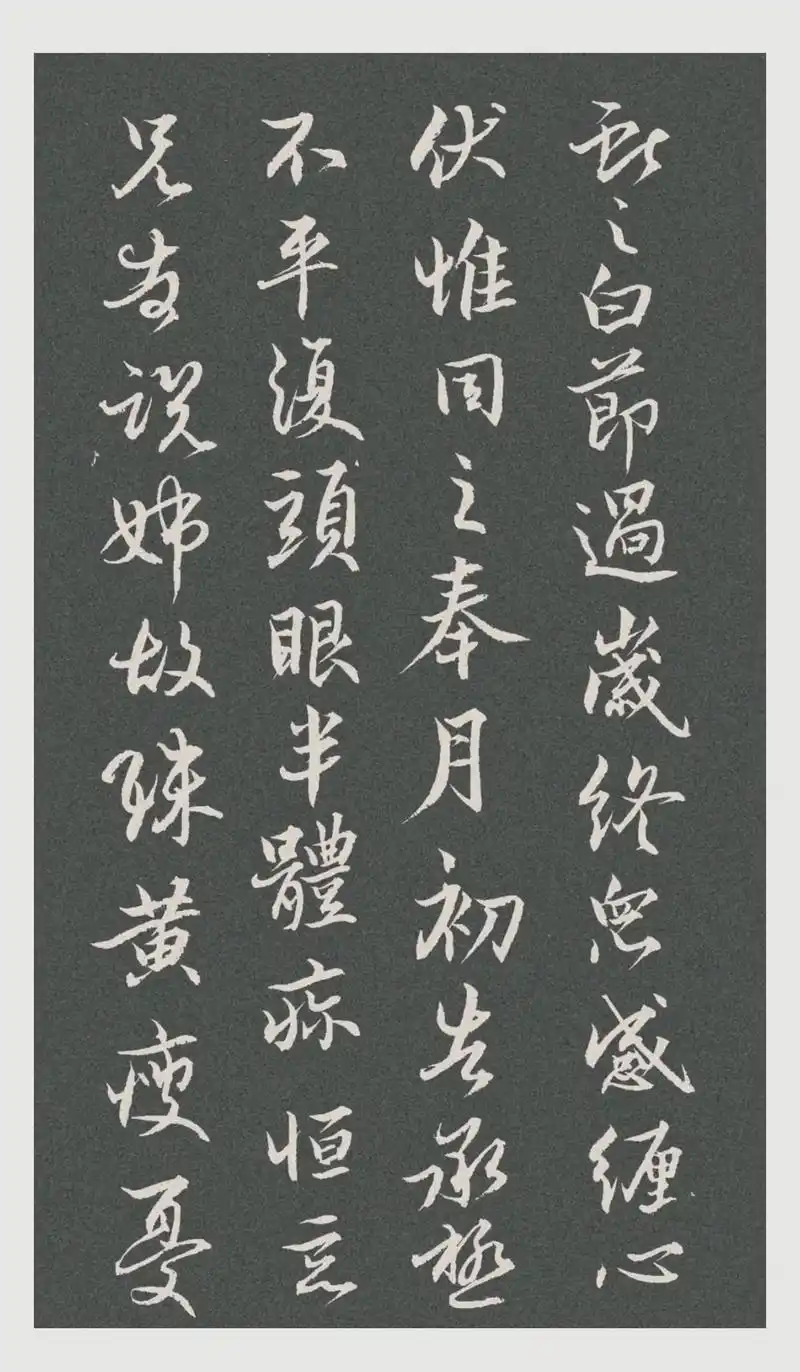 獻之白節過歲終衆感纏心
伏惟同之奉月初告承極
不平復頭眼半體恒
兄說姊故殊黃瘦憂